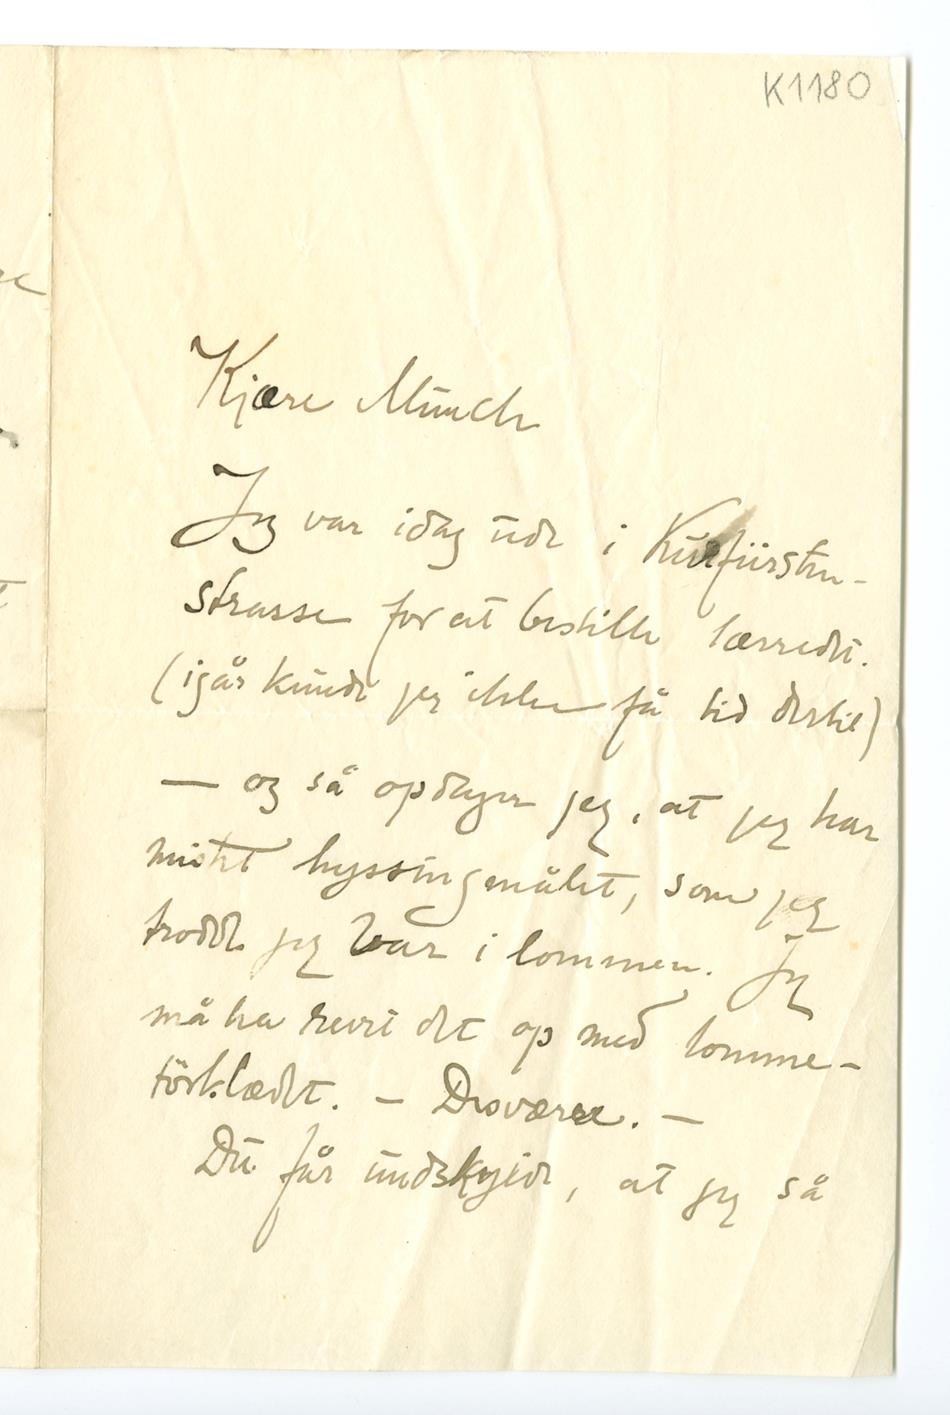 K1180
Kjære Munch
Jeg var idag ude i Kurfürsten-
strasse for at bestille lærredet.
(igår kunde jeg ikke få tid dertil)
— og så opdager jeg, at jeg har
mistet hyssingmålet, som jeg
trodde jeg var i lommen. Jeg
må ha revet det op med lomme-
törklædet. – Desværre. –
Du får undskylde, at jeg så